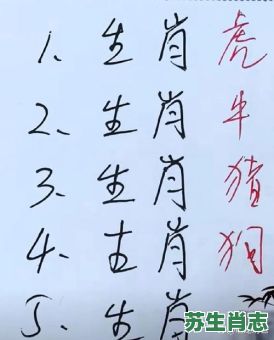 1、生肖虎
2、生肖牛
3、生肖猪
4、生肖狗
5、生肖
苏生肖志